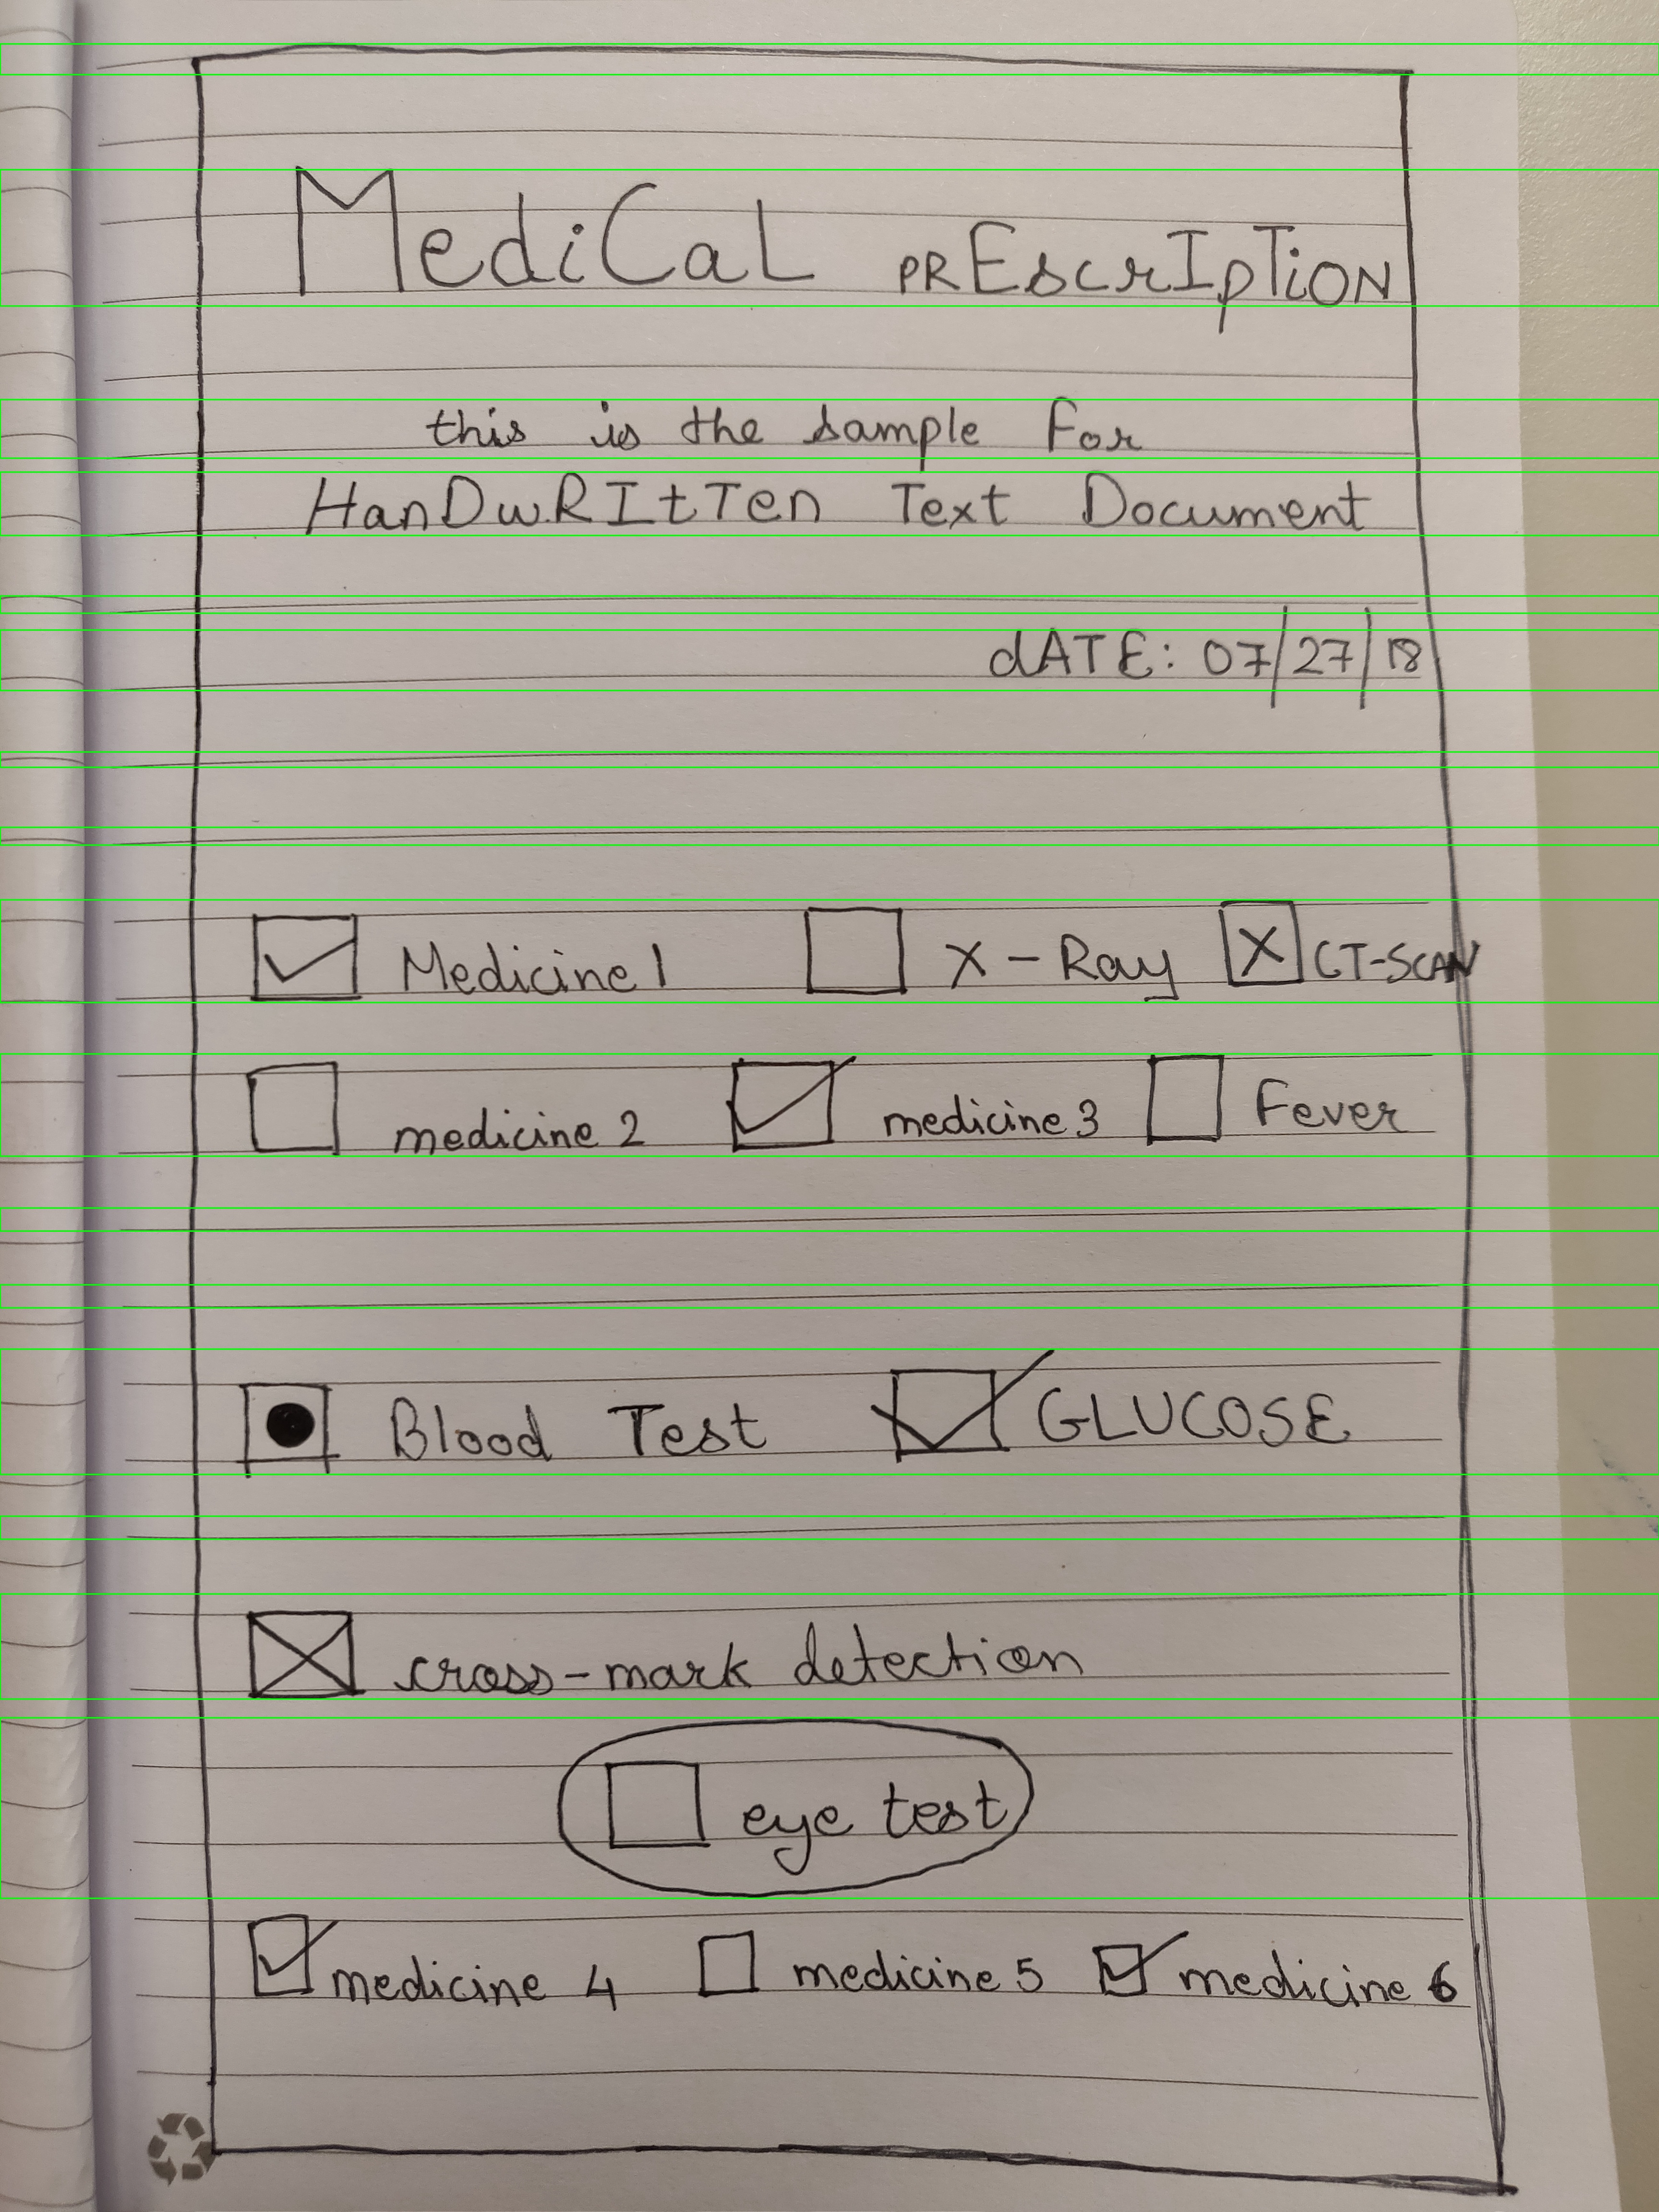 MediCaL PREscrIpTiON
this is the sample For
HanDwRItTen Text Document
dATE: 07/27/18
Medicine 1 X-Ray CT-SCAN
medicine 2 medicine 3 Fever
Blood Test GLUCOSE
cross-mark detection
eye test
medicine 4 medicine 5 medicine 6